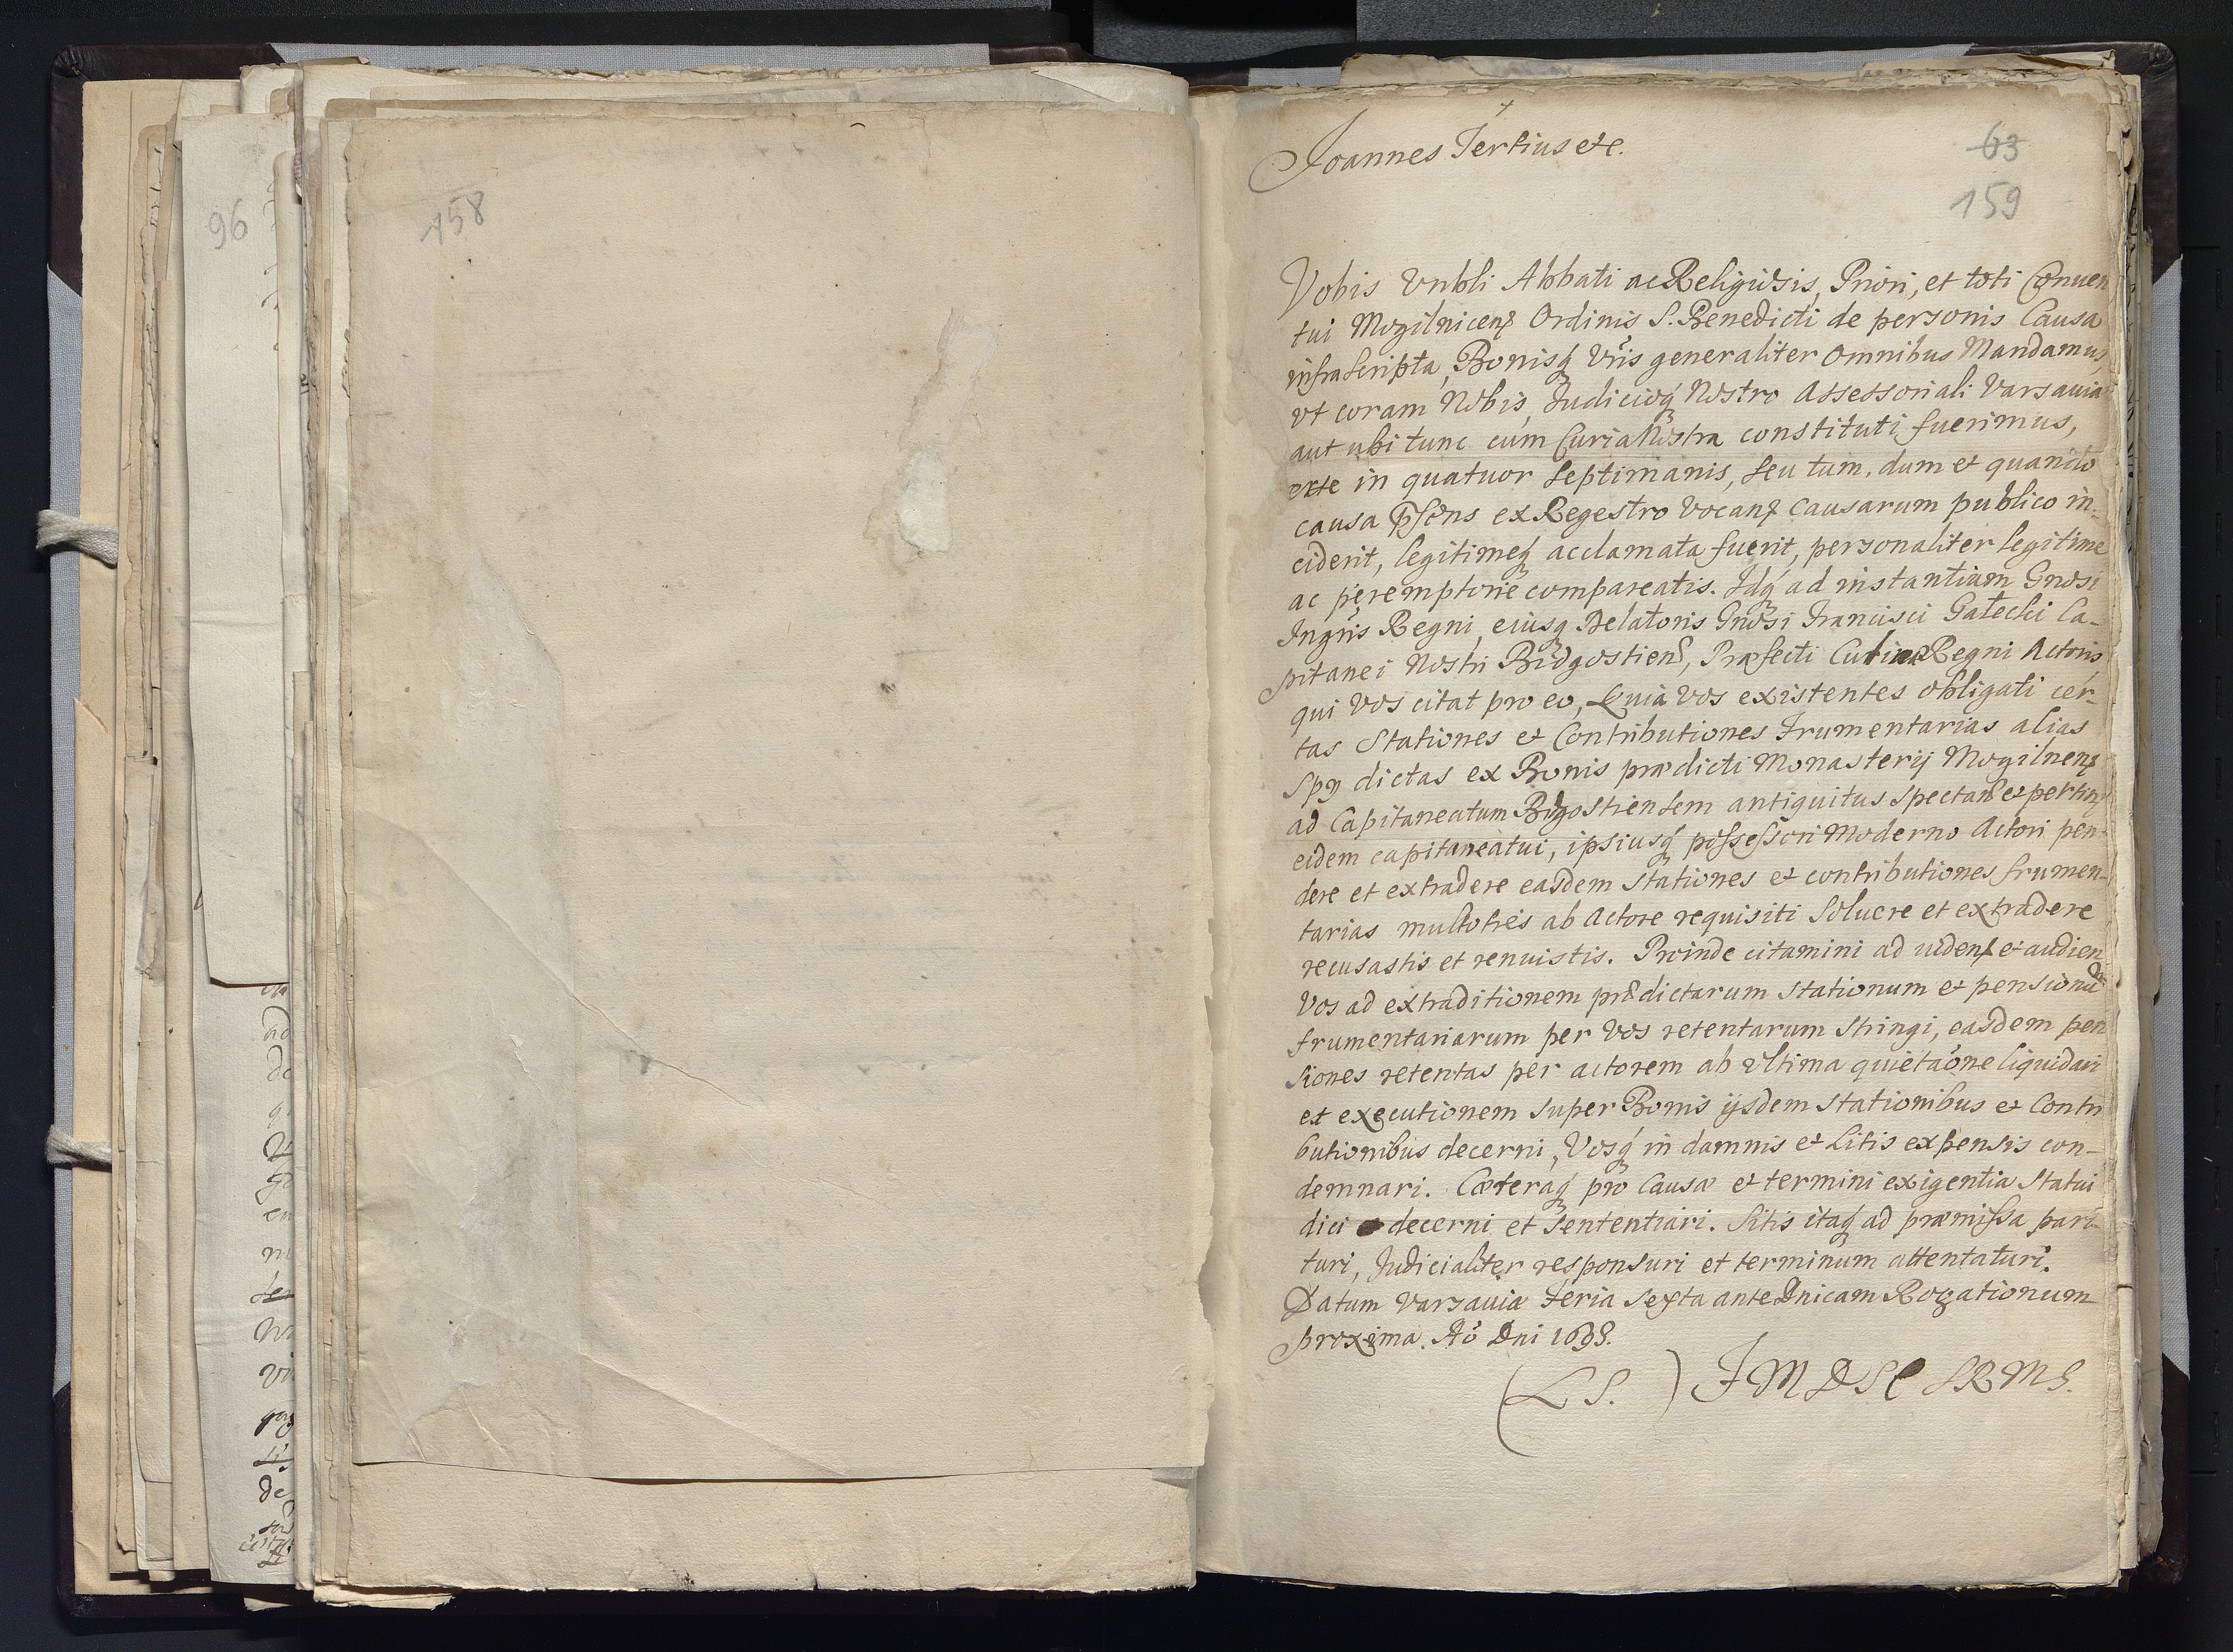 96
158
+
Joannes Tertius etc.
63
159
Vobis Vnbli Abbati ac Religiosis, Priori, et toti Conuen
tui Mogilnicens Ordinis S. Benedicti de personis Causa
infrascripta, Bonisq Vris generaliter Omnibus Mandamus,
vt coram Nobis, Iudicioq Nostro Assessoriali Varsauiæ
aut ubi tunc cum Curia Nostra constituti fuerimus,
in quatuor Septimanis, seu tum, dum et quando
causa psens ex Regestro Vocan causarum publico in-
ciderit, legitimeq acclamata fuerit, personaliter legitime
ac peremptorie compareatis. Idq ad instantiam Gnosi
Ingris Regni, eiusq Delatoris Gnosi Francisci Gałecki Ca-
pitanei Nostri Bidgostien, Præfecti Culinæ Regni Actoris
qui Vos citat pro eo, Quia Vos existentes obligati cer-
tas Stationes et Contributiones Frumentarias alias
Spy dictas ex Bonis prædicti Monasterij Mogilnens
ad Capitaneatum Bidgostiensem antiquitus Spectan et pertin
eidem capitaneatui, ipsiusq possessori Moderno Actori pen-
dere et extradere easdem Stationes et contributiones frumen-
tarias multoties ab Actore requisiti Soluere et extradere
recusastis et renuistis. Proinde citamini ad viden et audien
Vos ad extraditionem prædictarum Stationum et pensionu
frumentariarum per Vos retentarum Stringi, easdem pen
siones retentas per actorem ab Vltima quietaone liquidari
et executionem super Bonis ijsdem Stationibus et Contri
butionibus decerni, Vosq in damnis et Litis expensis con-
demnari. Cæteraq pro Causæ et termini exigentia Statui
dici decerni et Sententiari. Sitis itaq ad præmissa pari-
turi, Iudicialiter responsuri et terminum attentaturi.
Datum Varsauiæ feria Sexta ante Dnicam Rogationum
proxima. Ao Dni 1688.
(L S.)